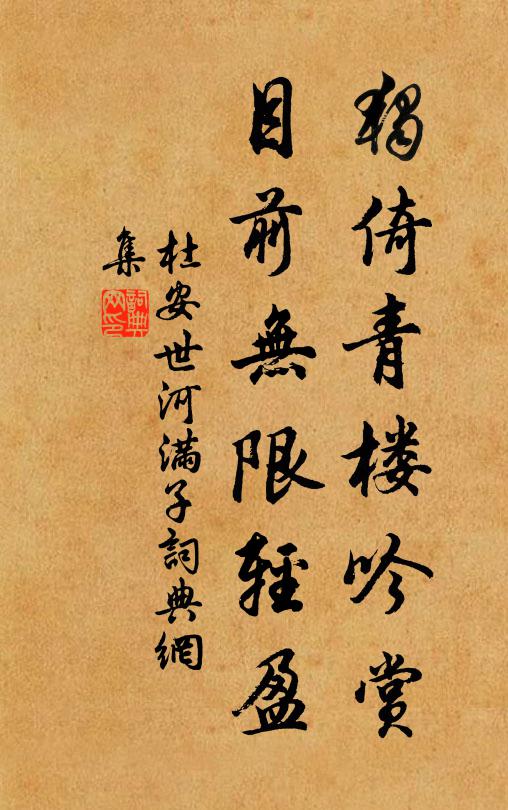 獨倚青楼吟赏
目前無限輕盈
杜安世河满子詞典網
集
詞典網印